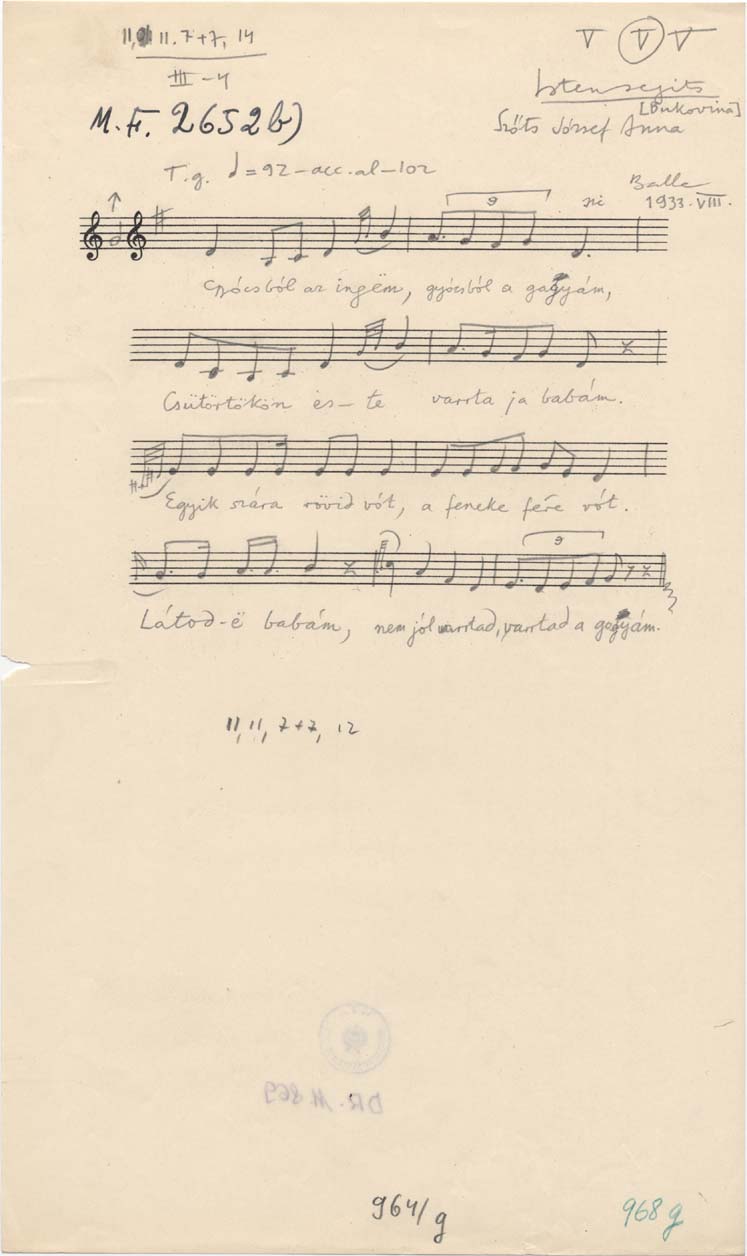 11, 11. 7+7, 14
III – 4
V V V
M. F. 2652 b)
Istensegits
[Bukovina]
Szőts József Anna
T.g. = 92 – acc. al – 102
Balla
1933. VIII.
9
Gyócsból az ingëm, gyócsból a gagyám,
Csütörtökön es–te varrta ja babám.
Egyik szára rövid vót, a feneke fére vót.
9
Látod-ë babám, nem jól varrtad, varrtad a gagyám.
11, 11, 7+7, 12
DR. M 869
964/g
968 g